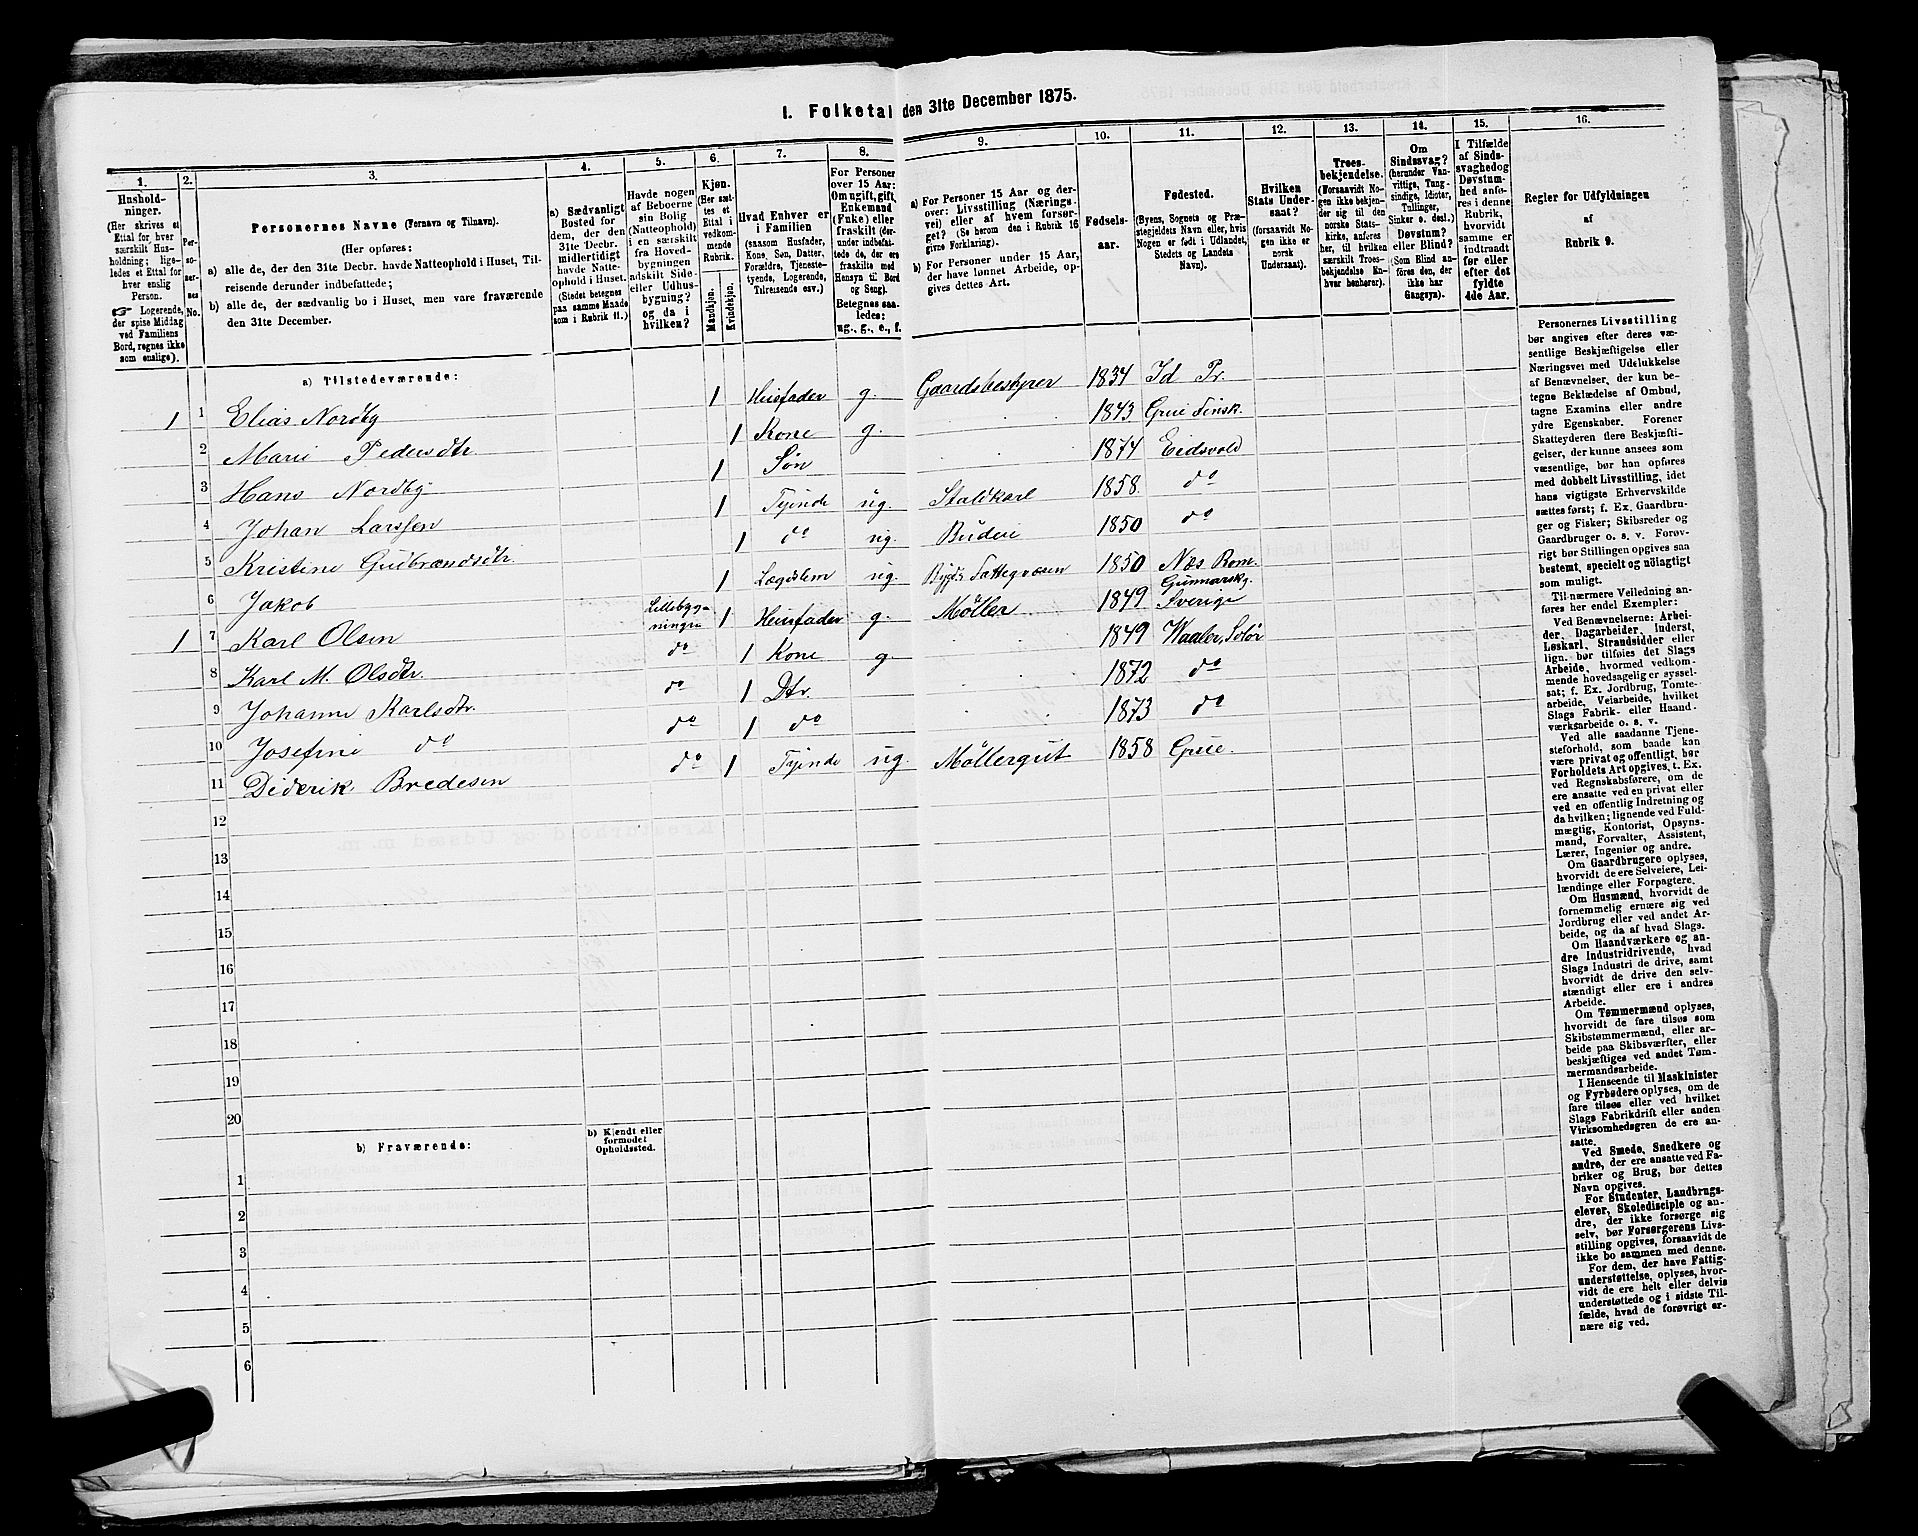 1. Folketal den 31te December 1875.
1.
2.
3.
4.
5.
6.
7.
8.
9.
10.
11.
12.
13.
14.
15.
16.
Hushold-
ninger.
(Her skrives et
Ettal for hver
særskilt Hus-
holdning; lige-
ledes et Ettal for
hver enslig
Person.
☞ Logerende,
der spise Middag
ved Familiens
Bord, regnes ikke
som enslige).
Per-
soner-
nes
No.
Personernes Navne (Fornavn og Tilnavn).
(Her opføres:
a) alle de, der den 31te Decbr. havde Natteophold i Huset, Til-
reisende derunder indbefattede;
b) alle de, der sædvanlig bo i Huset, men vare fraværende
den 31te December.
a) Sædvanligt
Bosted for
dem, der den
31te Decbr.
midlertidigt
havde Natte-
ophold i Huset.
(Stedet betegnes
paa samme Maade
som i Rubrik 11.)
Havde nogen
af Beboerne
sin Bolig
(Natteophold)
i en særskilt
fra Hoved-
bygningen
adskilt Side-
eller Udhus-
bygning?
og da i
hvilken?
Kjøn.
(Her sæt-
tes et
Ettal i
vedkom-
mende
Rubrik.
Mandkjøn.
Kvindekjøn.
Hvad Enhver er
i Familien
(saasom Husfader,
Kone, Søn, Datter,
Forældre, Tjeneste-
tyende, Logerende,
Tilreisende osv.)
For Personer
over 15 Aar:
Om ugift, gift,
Enkemand
(Enke) eller
fraskilt (der-
under indbefat-
tede de, der ere
fraskilte med
Hensyn til Bord
og Seng).
Betegnes saa-
ledes:
ug., g., e., f.
a) For Personer 15 Aar og der-
over: Livsstilling (Nærings-
vei) eller af hvem forsør-
get? (Se herom den i Rubrik 16
givne Forklaring).
b) For Personer under 15 Aar,
der have lønnet Arbeide, op-
gives dettes Art.
Fødsels-
aar.
Fødested.
(Byens, Sognets og Præ-
stegjeldets Navn eller, hvis
Nogen er født i Udlandet,
Stedets og Landets
Navn).
Hvilken
Stats Under-
saat?
(forsaavidt No-
gen ikke er
norsk
Undersaat).
Troes-
bekjendelse.
(Forsaavidt No-
gen ikke bekjen-
der sig til den
norske Stats-
kirke, anføres
her, til hvilken
særskilt Troes-
bekjendelse En-
hver henhører).
Om
Sindssvag?
(herunder Van-
vittige, Tung-
sindige, Idioter,
Tullinger,
Sinker o. desl.)
Døvstum?
eller Blind?
(Som Blind an-
føres den, der
ikke har
Gangsyn).
I Tilfælde
af Sinds-
svaghed og
Døvstum-
hed anfø-
res i denne
Rubrik,
hvorvidt
samme er
indtraadt
før eller
efter det
fyldte
4de Aar.
Regler for Udfyldningen
af
Rubrik 9.
a) Tilstedeværende:
1 1 Elias Nordby 1 Huusfader g. Gaardsbestyrer 1834 Id Pr.
2 Marie Pedersdtr. 1 Kone g. 1843 Grue Finsk.
3 Hans Nordby 1 Søn 1874 Eidsvold
4 Johan Larssen 1 Tjende ug. Staldkarl 1858. do
5 Kristine Gulbrandsdtr. 1 do ug. Budeie 1850 do
6 Jakob 1 Lægdslem ug. Bygds Fattegvæsen 1850 Næs Rom.
1 7 Karl Olsen Lillebyg-
ningen 1 Huusfader g. Møller 1849 Gunnarskg. Sverige
8 Karl M. Olsdtr. do 1 Kone g. 1849 Waaler, Solør
9 Johanne Karlsdtr. do 1 Dtr. 1872 do
10 Josefine do do 1 do 1873 do
11 Diderik Bredesen do 1 Tjende ug. Møllergut 1858 Grue.
12
13
14
15
16
17
18
19
20
b) Fraværende:
b) Kjendt eller
formodet
Opholdssted.
1
2
3
4
5
6
Personernes Livsstilling
bør angives efter deres væ-
sentlige Beskjæftigelse eller
Næringsvei med Udelukkelse
af Benævnelser, der kun be-
tegne Beklædelse af Ombud,
tagne Examina eller andre
ydre Egenskaber. Forener
Skatteyderen flere Beskjæfti-
gelser, der kunne ansees som
væsentlige, bør han opføres
med dobbelt Livsstilling, idet
hans vigtigste Erhvervskilde
sættes først; f. Ex. Gaardbru-
ger og Fisker; Skibsreder og
Gaardbruger o. s. v. Forøv-
rigt bør Stillingen opgives saa
bestemt, specielt og udlagtigt
som muligt.
Til nærmere Veiledning an-
føres her endel Exempler:
Ved Benævnelserne: Arbei-
der, Dagarbeider, Inderst,
Løskarl, Strandsidder eller
lign. bør tilføies det Slags
Arbeide, hvormed vedkom-
mende hovedsagelig er syssel-
sat; f. Ex. Jordbrug, Tomte-
arbeide, Veiarbeide, hvilket
Slags Fabrik- eller Haand-
værksarbeide o. s. v.
Ved alle saadanne Tjene-
steforhold, som baade kan
være privat og offentligt, bør
Forholdets Art opgives, t. Ex.
ved Regnskabsførere, om de
ere ansatte ved en privat eller
ved en offentlig Indretning og
da hvilken; lignende ved Fuld-
mægtig, Kontorist, Opsyns-
mand, Forvalter, Assistent,
Lærer, Ingeniør og andre.
Om Gaardbrugere oplyses,
hvorvidt de ere Selveiere, Lei-
lændinge eller Forpagtere.
Om Husmænd, hvorvidt de
fornemmelig ernære sig ved
Jordbrug eller ved andet Ar-
beide, og da af hvad Slags.
Om Haandværkere og an-
dre Industridrivende, hvad
Slags Industri de drive, samt
hvorvidt de drive den selv-
stændigt eller ere i andres
Arbeide.
Om Tømmermænd oplyses,
hvorvidt de fare tilsøs som
Skibstømmermænd, eller ar-
beide paa Skibsværfter, eller
beskjæftiges ved andet Tøm-
mermandsarbeide.
I Henseende til Maskinister
og Fyrbødere oplyses, om de
fare tilsøs eller ved hvilket
Slags Fabrikdrift eller anden
Virksomhedsgren de ere an-
satte.
Ved Smede, Snedkere og
andre, der ere ansatte ved Fa-
briker og Brug, bør dettes
Navn opgives.
For Studenter, Landbrugs-
elever, Skoledisciple og an-
dre, der ikke forsørge sig
selv, bør Forsørgerens Livs-
stilling opgives, forsaavidt de
ikke bo sammen med denne.
For dem, der have Fattig-
understøttelse, oplyses, hvor-
vidt de ere helt eller delvis
understøttede og i sidste Til-
fælde, hvad de forøvrigt er-
nære sig ved.